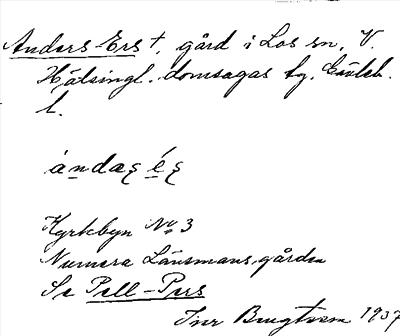 Anders-Ers †, gård i Los sn, V.
Hälsingl. domsagas tg, Gävleb.
l.
àndaȿ éȿ
Kyrkbyn No 3
Numera Länsmansgården
Se Pell-Pers
Ivar Bengtsson 1937